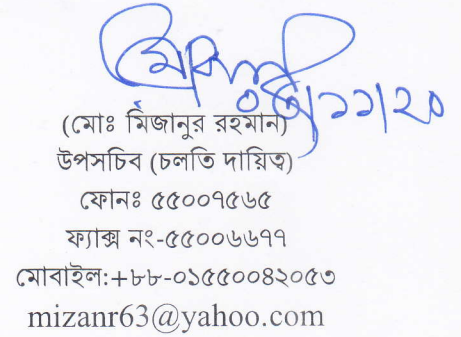 ১১/২০
(মোঃ মিজানুর রহমান)
উপসচিব (চলতি দায়িত্ব)
ফোনঃ ৫৫০০৭৫৬৫
ফ্যাক্স নং-৫৫০০৬৬৭৭
মোবাইল:+৮৮-০১৫৫০০৪২০৫৩
mizanr63@yahoo.com